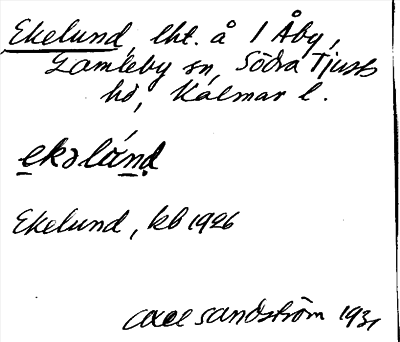 Ekelund, lht. å 1 Åby,
Gamleby sn, Södra Tjusts
hd, Kalmar l.
ekəlánḍ
Ekelund, kb 1926
Axel Sandström 1931